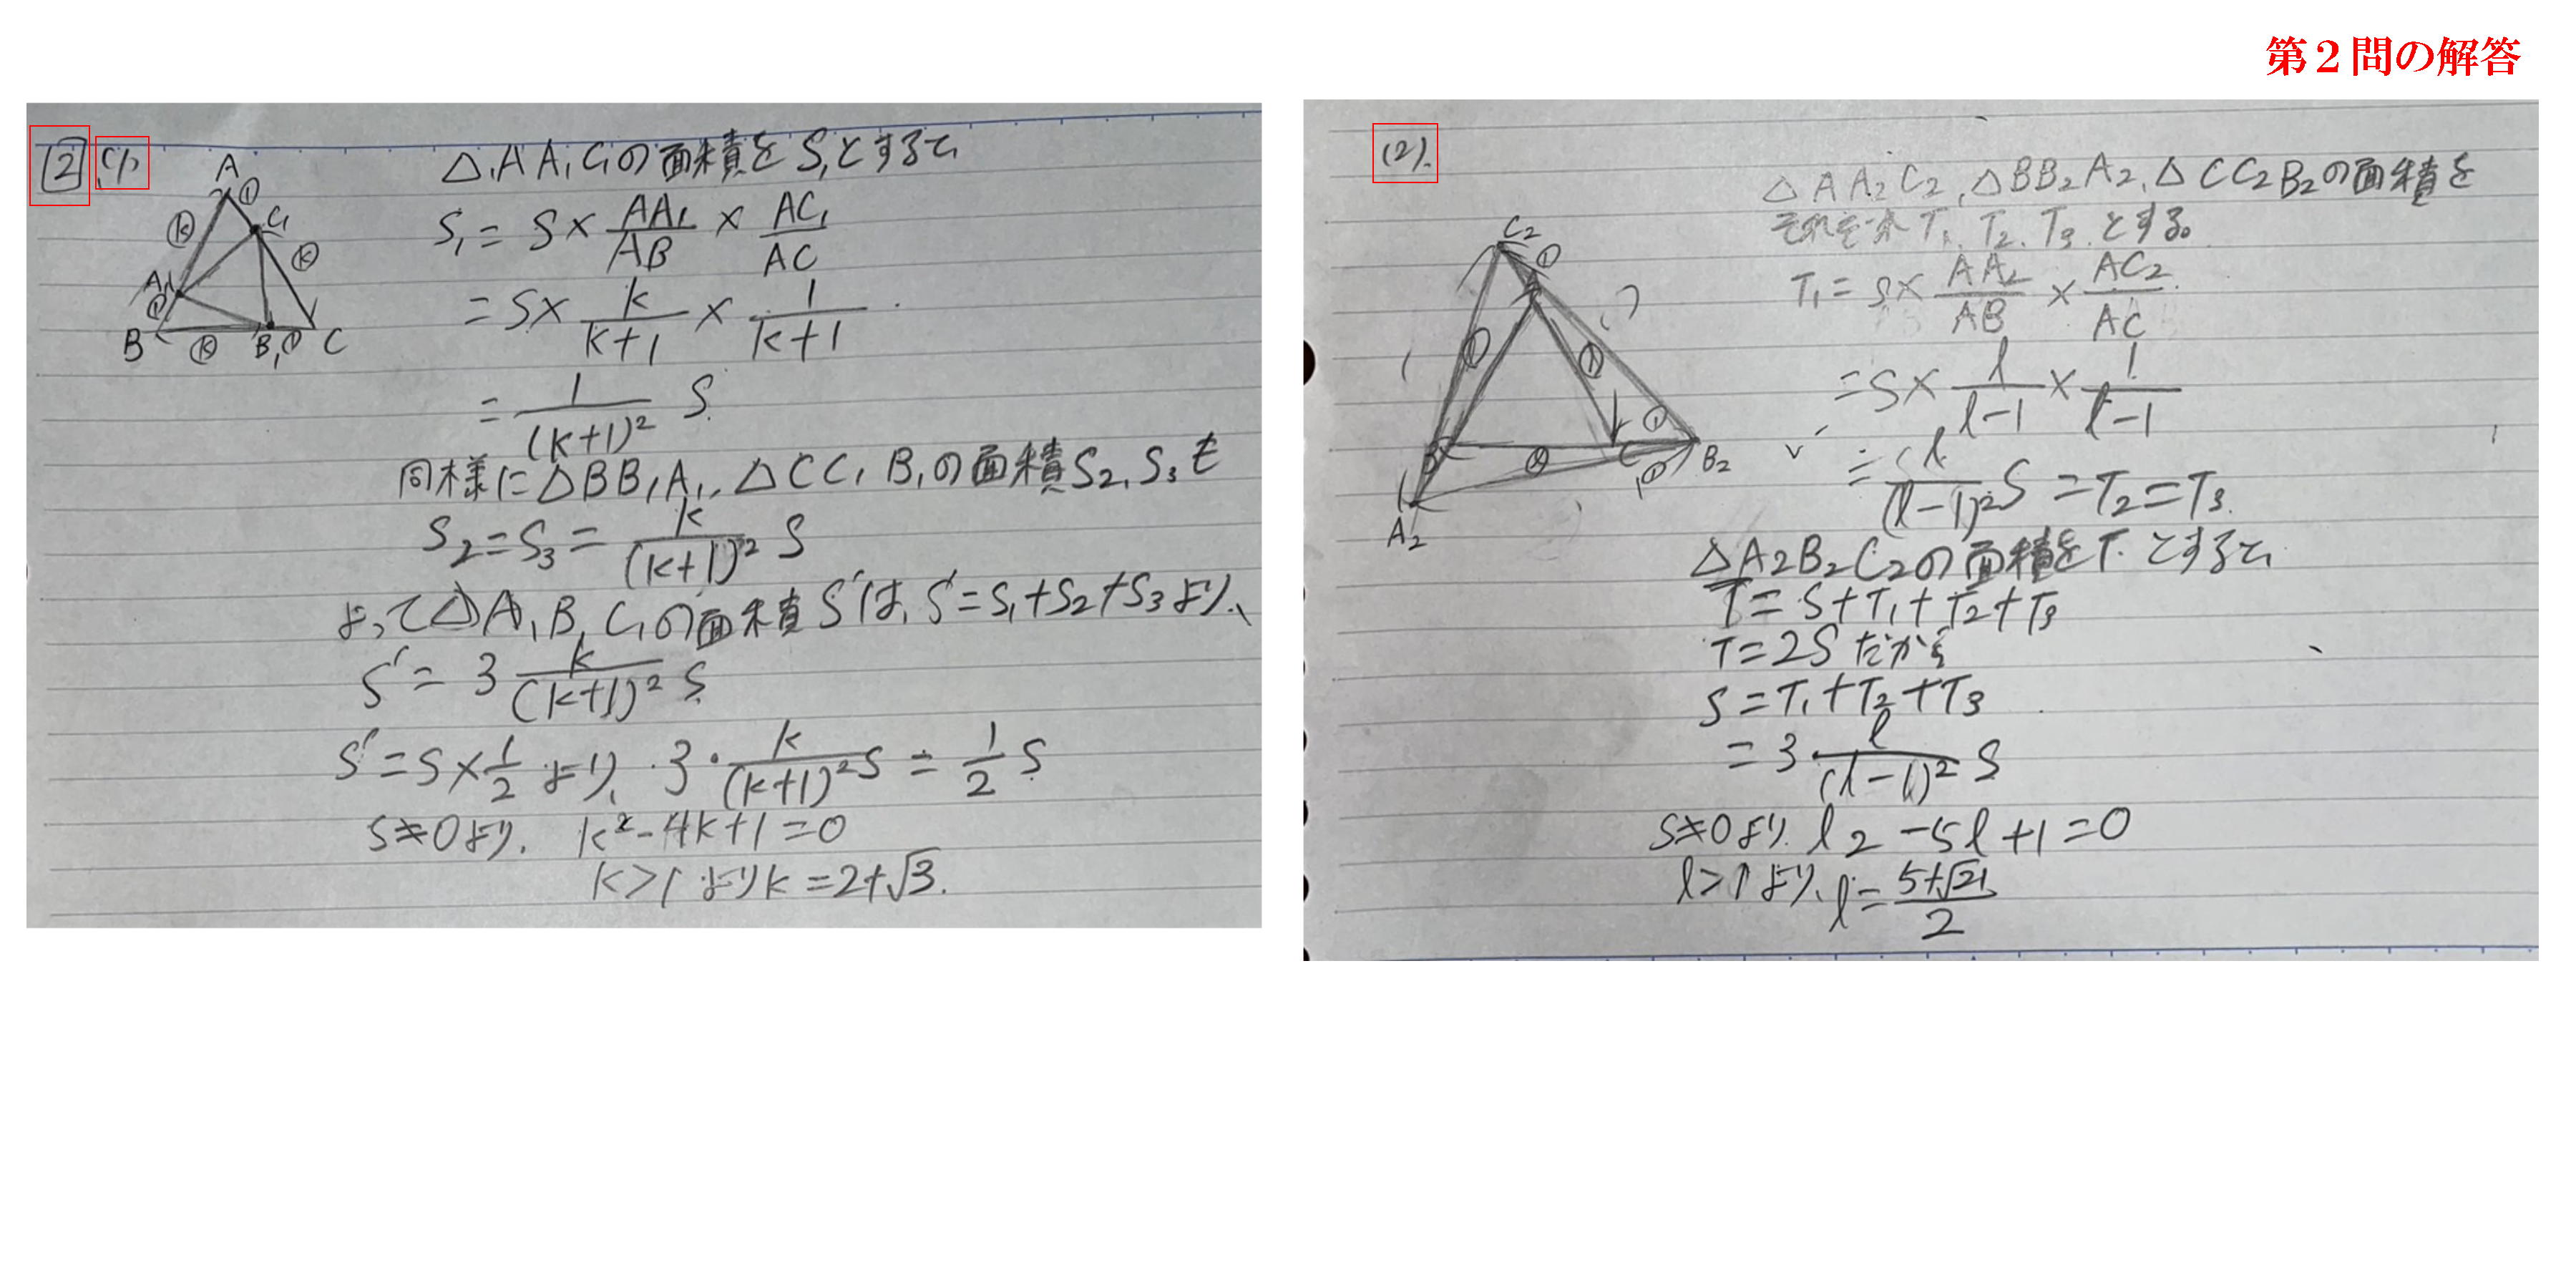 第2問の解答
[2] (1)
A
① C₁
ⓚ ⓚ
A₁
①
B ⓚ B₁ ① C
△AA₁C₁の面積をS₁とすると
S₁ = S × AA₁/AB × AC₁/AC
= S × k/(k+1) × 1/(k+1)
= 1/(k+1)² S
同様に△BB₁A₁, △CC₁B₁の面積S₂, S₃も
S₂=S₃= k/(k+1)² S
よって△A₁B₁C₁の面積S'は, S'=S₁+S₂+S₃より、
S' = 3 k/(k+1)² S
S' = S×1/2 より、 3・k/(k+1)² S = 1/2 S
S≠0より, k²-4k+1=0
k>1よりk=2+√3.
(2).
C₂
①
B C ① B₂
A₂
△AA₂C₂, △BB₂A₂, △CC₂B₂の面積を
それぞれT₁, T₂, T₃とする。
T₁ = S × AA₂/AB × AC₂/AC
= S × l/(l-1) × 1/(l-1)
= l/(l-1)² S = T₂ = T₃.
△A₂B₂C₂の面積をTとすると
T = S+T₁+T₂+T₃
T=2Sだから
S=T₁+T₂+T₃
= 3・l/(l-1)² S
S≠0より l2-5l+1=0
l>1より、l= (5+√21)/2